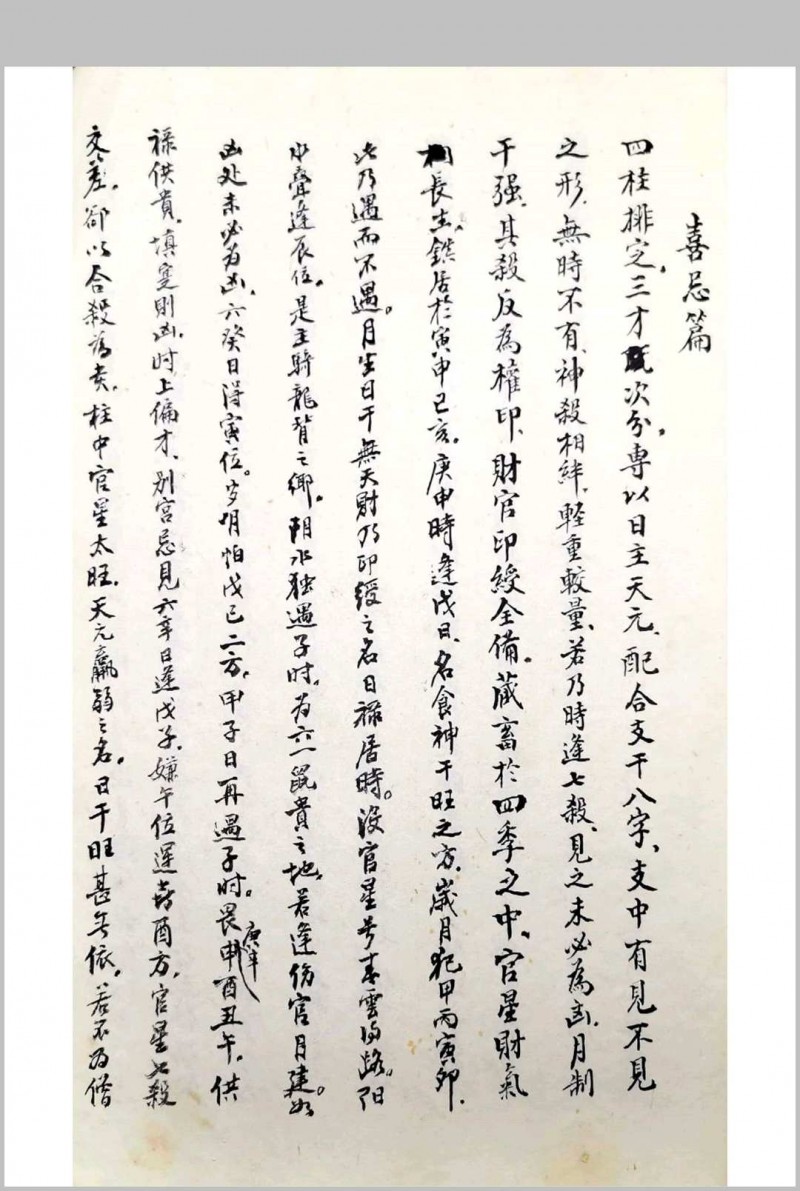 喜忌篇
四柱排定，三才既次分，專以日主天元，配合支干八字，支中有見不見
之形，無時不有，神殺相絆，輕重較量，若乃時逢七殺，見之未必為凶，月制
干强，其殺反為權印，財官印綬全備，藏畜於四季之中，官星財氣
長生，鎮居於寅申巳亥。庚申時逢戊日，名食神干旺之方，歲月犯甲丙寅卯，
此乃遇而不遇。月生日干無天財乃印綬之名日禄居時。没官星号青雲得路。阳
水疊逢辰位。是壬騎龍背之鄉。阴水独遇子时。为六一鼠貴之地。若逢伤官月建如
凶处未必为凶。六癸日得寅位。岁月怕戊己二方。甲子日再遇子时。畏庚辛申酉丑午。供
禄供贵。填实則凶。时上偏才、别宫忌見六辛日逢戊子。嫌午位運喜酉方。官星七殺
交差。卻以合殺为贵。柱中官星太旺。天元羸弱之名。日干旺甚无依。若不为僧